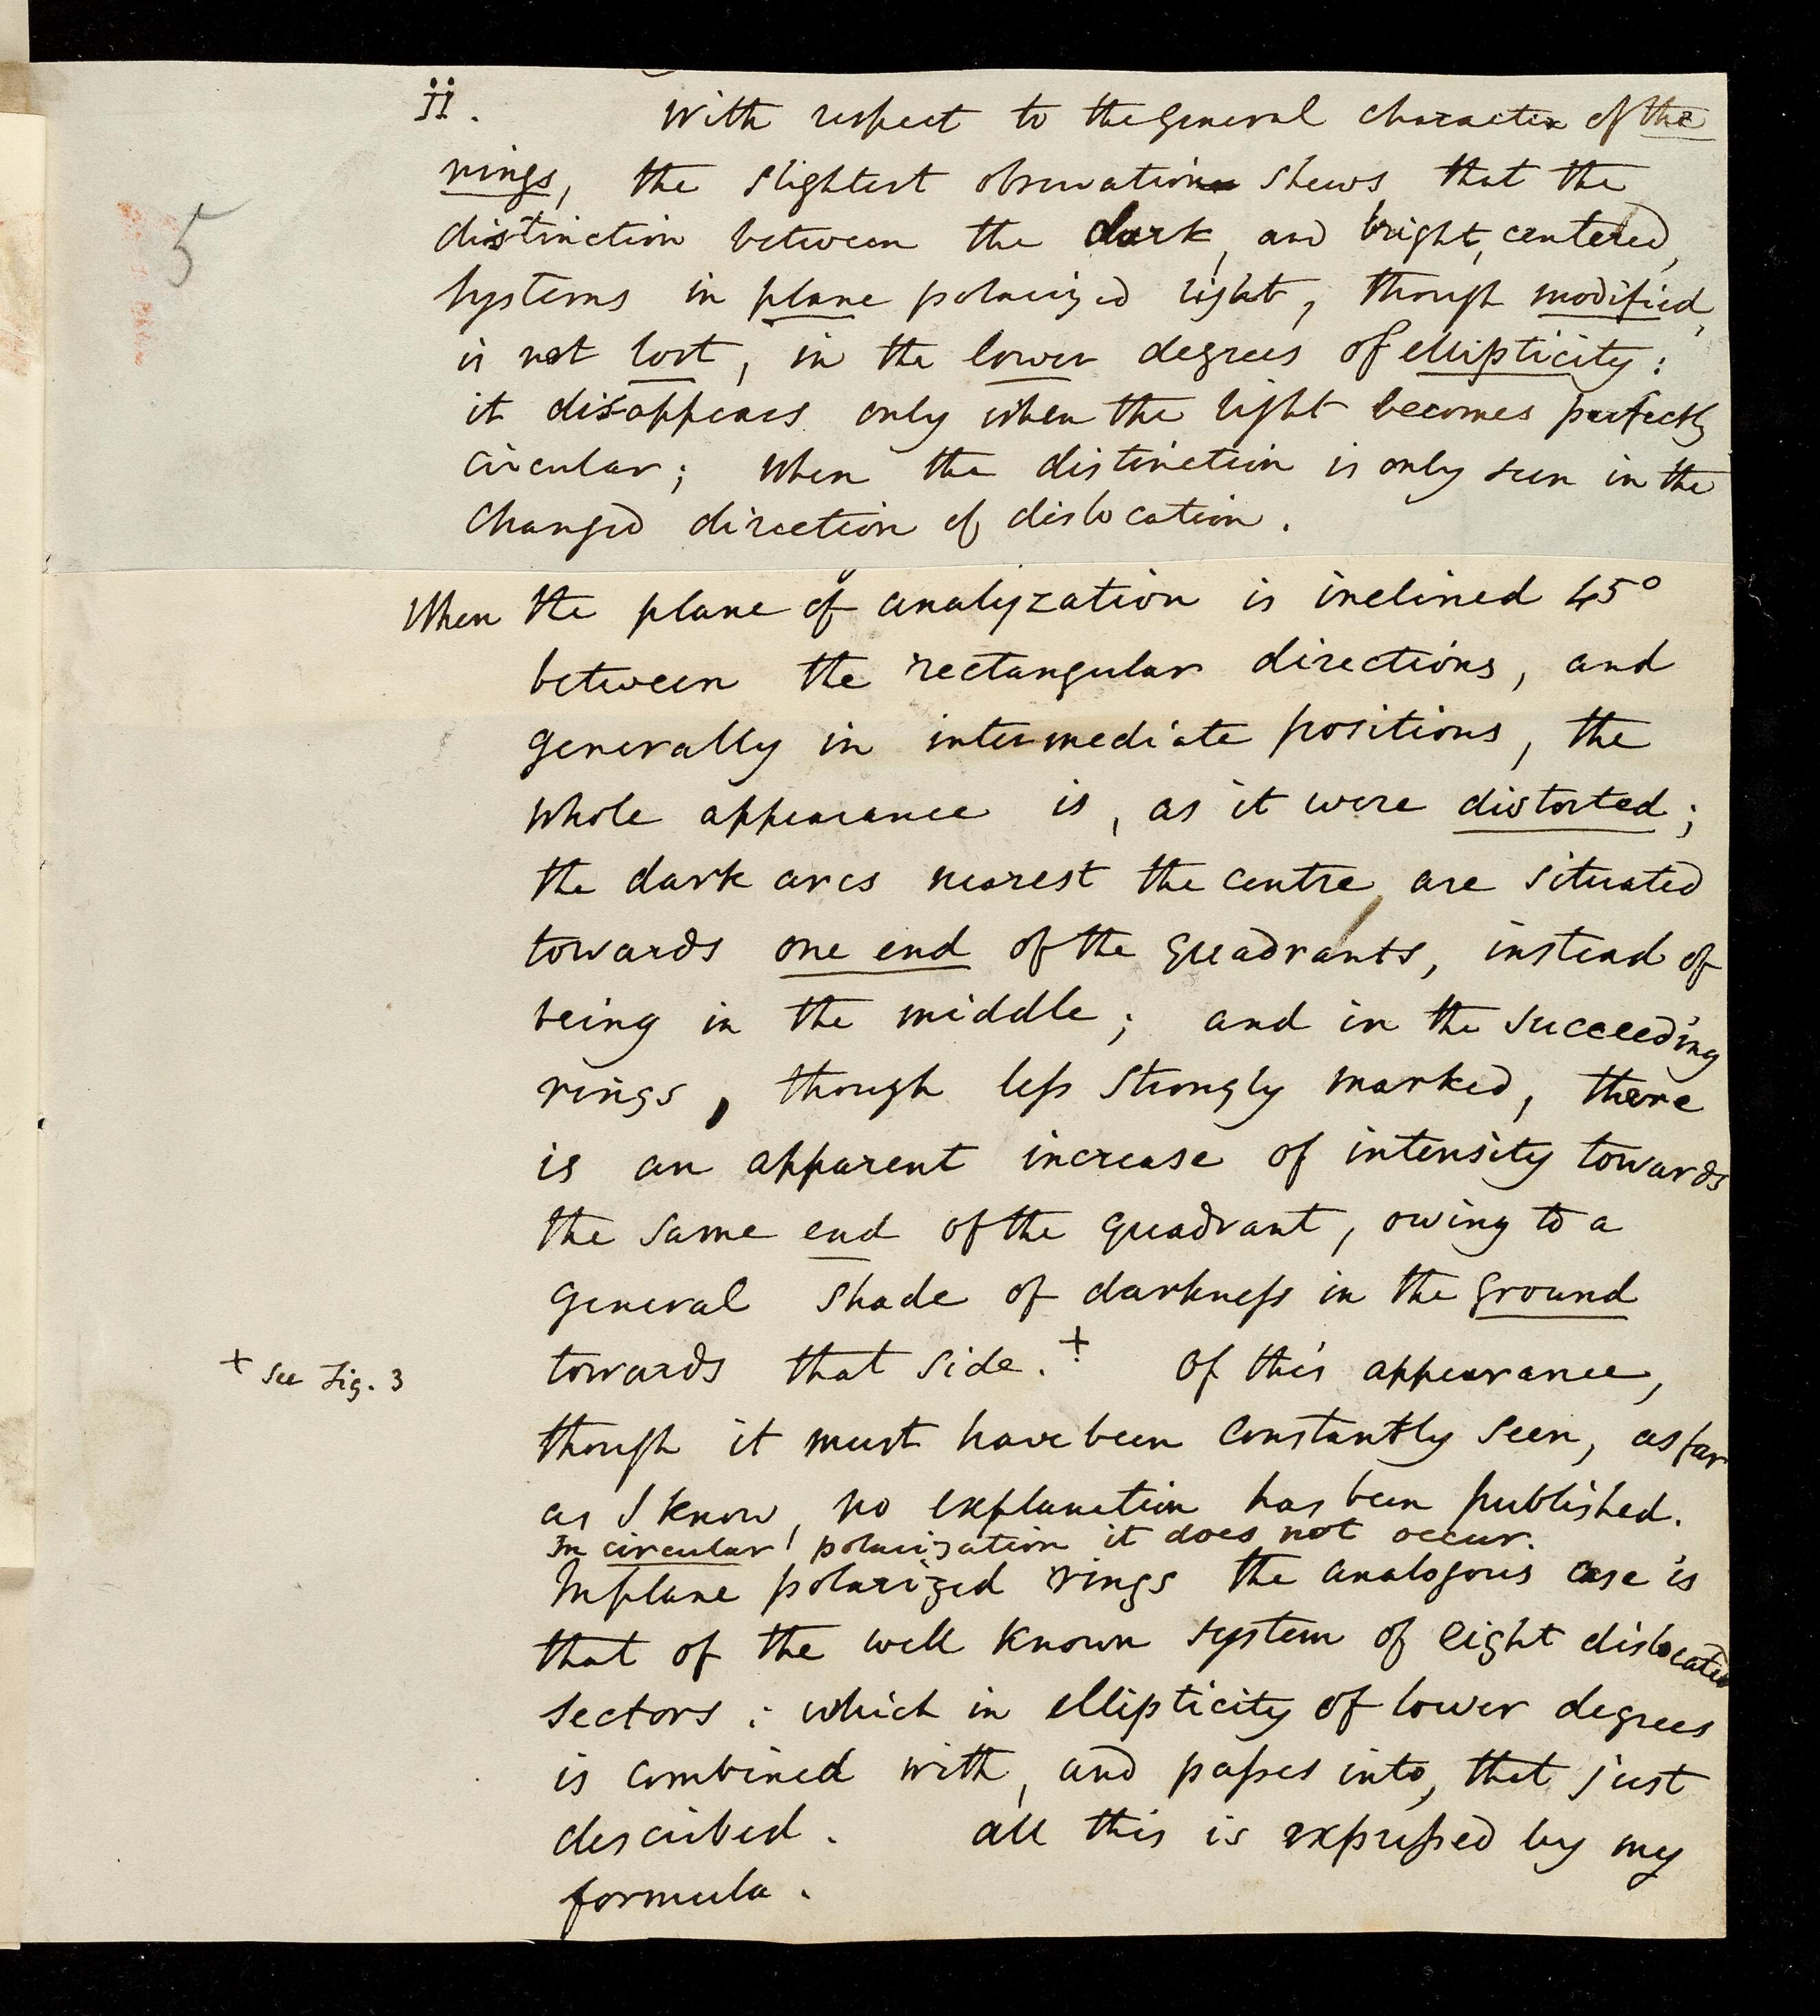 5
ii. With respect to the general character of the
rings, the slightest observation shews that the
distinction between the dark, and bright, centered,
systems in plane polarized light, though modified,
is not lost, in the lower degrees of ellipticity:
it disappears only when the light becomes perfectly
circular; when the distinction is only seen in the
changed direction of dislocation.
When the plane of analyzation is inclined 45°
between the rectangular directions, and
generally in intermediate positions, the
whole appearance is, as it were distorted;
the dark arcs nearest the centre are situated
towards one end of the quadrants, instead of
being in the middle; and in the succeeding
rings, though less strongly marked, there
is an apparent increase of intensity towards
the same end of the quadrant, owing to a
general shade of darkness in the ground
towards that side.+ Of this appearance,
+ See Fig. 3
though it must have been constantly seen, as far
as I know, no explanation has been published.
In circular polarization it does not occur.
In plane polarized rings the analogous case is
that of the well known system of eight dislocated
sectors: which in ellipticity of lower degrees
is combined with, and passes into, that just
described. All this is expressed by my
formula.